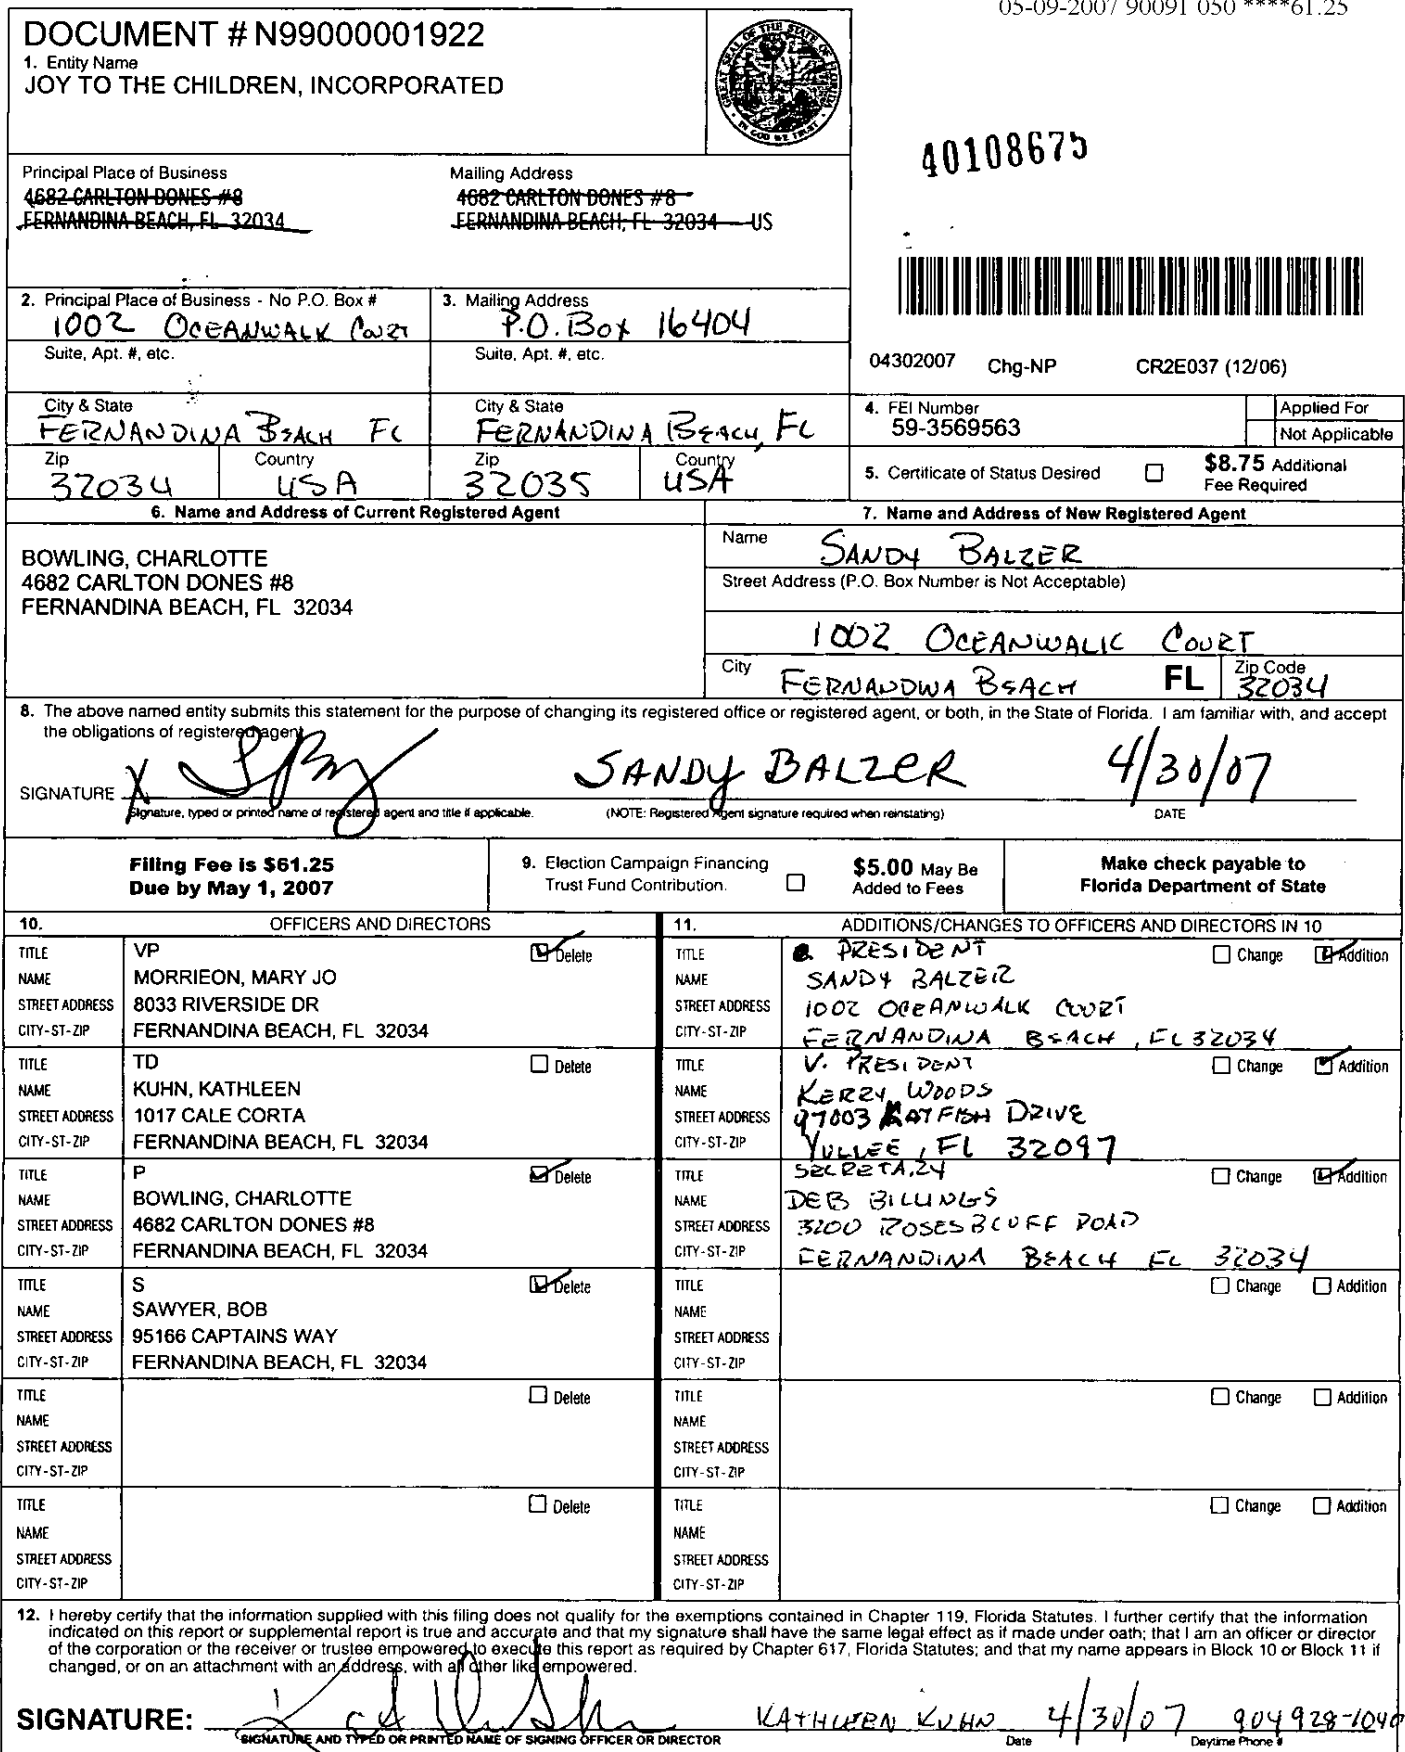 05-09-2007 90091 050 ****61.25
DOCUMENT # N99000001922
1. Entity Name
JOY TO THE CHILDREN, INCORPORATED
GREAT SEAL OF THE STATE OF FLORIDA
IN GOD WE TRUST
40108675
Principal Place of Business
4682 CARLTON DONES #8
FERNANDINA BEACH, FL 32034
Mailing Address
4682 CARLTON DONES #8
FERNANDINA BEACH, FL 32034 US
2. Principal Place of Business - No P.O. Box #
1002 OCEANWALK COURT
Suite, Apt. #, etc.
City & State
FERNANDINA BEACH FL
Zip
32034
Country
USA
3. Mailing Address
P.O. Box 16404
Suite, Apt. #, etc.
City & State
FERNANDINA BEACH, FL
Zip
32035
Country
USA
04302007 Chg-NP CR2E037 (12/06)
4. FEI Number
59-3569563
Applied For
Not Applicable
5. Certificate of Status Desired
$8.75 Additional
Fee Required
6. Name and Address of Current Registered Agent
BOWLING, CHARLOTTE
4682 CARLTON DONES #8
FERNANDINA BEACH, FL 32034
7. Name and Address of New Registered Agent
Name SANDY BALZER
Street Address (P.O. Box Number is Not Acceptable)
1002 OCEANWALK COURT
City FERNANDINA BEACH FL Zip Code 32034
8. The above named entity submits this statement for the purpose of changing its registered office or registered agent, or both, in the State of Florida. I am familiar with, and accept
the obligations of registered agent.
SIGNATURE X SANDY BALZER 4/30/07
Signature, typed or printed name of registered agent and title if applicable. (NOTE: Registered Agent signature required when reinstating) DATE
Filing Fee is $61.25
Due by May 1, 2007
9. Election Campaign Financing
Trust Fund Contribution.
$5.00 May Be
Added to Fees
Make check payable to
Florida Department of State
10. OFFICERS AND DIRECTORS
TITLE VP Delete
NAME MORRIEON, MARY JO
STREET ADDRESS 8033 RIVERSIDE DR
CITY-ST-ZIP FERNANDINA BEACH, FL 32034
TITLE TD Delete
NAME KUHN, KATHLEEN
STREET ADDRESS 1017 CALE CORTA
CITY-ST-ZIP FERNANDINA BEACH, FL 32034
TITLE P Delete
NAME BOWLING, CHARLOTTE
STREET ADDRESS 4682 CARLTON DONES #8
CITY-ST-ZIP FERNANDINA BEACH, FL 32034
TITLE S Delete
NAME SAWYER, BOB
STREET ADDRESS 95166 CAPTAINS WAY
CITY-ST-ZIP FERNANDINA BEACH, FL 32034
TITLE Delete
NAME
STREET ADDRESS
CITY-ST-ZIP
TITLE Delete
NAME
STREET ADDRESS
CITY-ST-ZIP
11. ADDITIONS/CHANGES TO OFFICERS AND DIRECTORS IN 10
TITLE PRESIDENT Change Addition
NAME SANDY BALZER
STREET ADDRESS 1002 OCEANWALK COURT
CITY-ST-ZIP FERNANDINA BEACH, FL 32034
TITLE V. PRESIDENT Change Addition
NAME KERRY WOODS
STREET ADDRESS 97003 KATFISH DRIVE
CITY-ST-ZIP YULLEE, FL 32097
TITLE SECRETARY Change Addition
NAME DEB BILLINGS
STREET ADDRESS 3200 ROSES BLUFF ROAD
CITY-ST-ZIP FERNANDINA BEACH FL 32034
TITLE Change Addition
NAME
STREET ADDRESS
CITY-ST-ZIP
TITLE Change Addition
NAME
STREET ADDRESS
CITY-ST-ZIP
TITLE Change Addition
NAME
STREET ADDRESS
CITY-ST-ZIP
12. I hereby certify that the information supplied with this filing does not qualify for the exemptions contained in Chapter 119, Florida Statutes. I further certify that the information
indicated on this report or supplemental report is true and accurate and that my signature shall have the same legal effect as if made under oath; that I am an officer or director
of the corporation or the receiver or trustee empowered to execute this report as required by Chapter 617, Florida Statutes; and that my name appears in Block 10 or Block 11 if
changed, or on an attachment with an address, with all other like empowered.
SIGNATURE: KATHLEEN KUHN 4/30/07 904 928-1040
SIGNATURE AND TYPED OR PRINTED NAME OF SIGNING OFFICER OR DIRECTOR Date Daytime Phone #